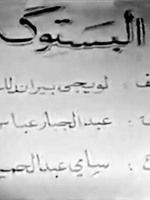 البستوگ
لويجي بيراندللـ
عبد الجبار عباس
سامي عبد الحميـ